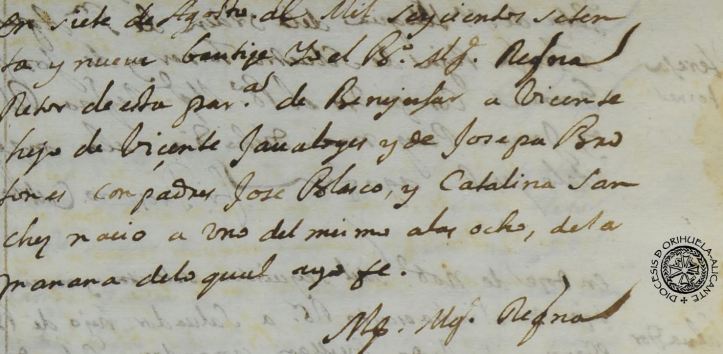 en siete de Agosto del Mil seyicientos seten
ta y nueve bautise Yo el B.º M. Regna
Retor de esta par.al de Benejusar a Vicente
hijo de Vicente Javaloyes y de Josepa Bro
tones conpadres Jose Blasco, y Catalina San
chez nacio a vno del mismo alas ocho, dela
manana delo qual doyo fe.
Regna
DIOCESIS D ORIHUELA-ALICANTE